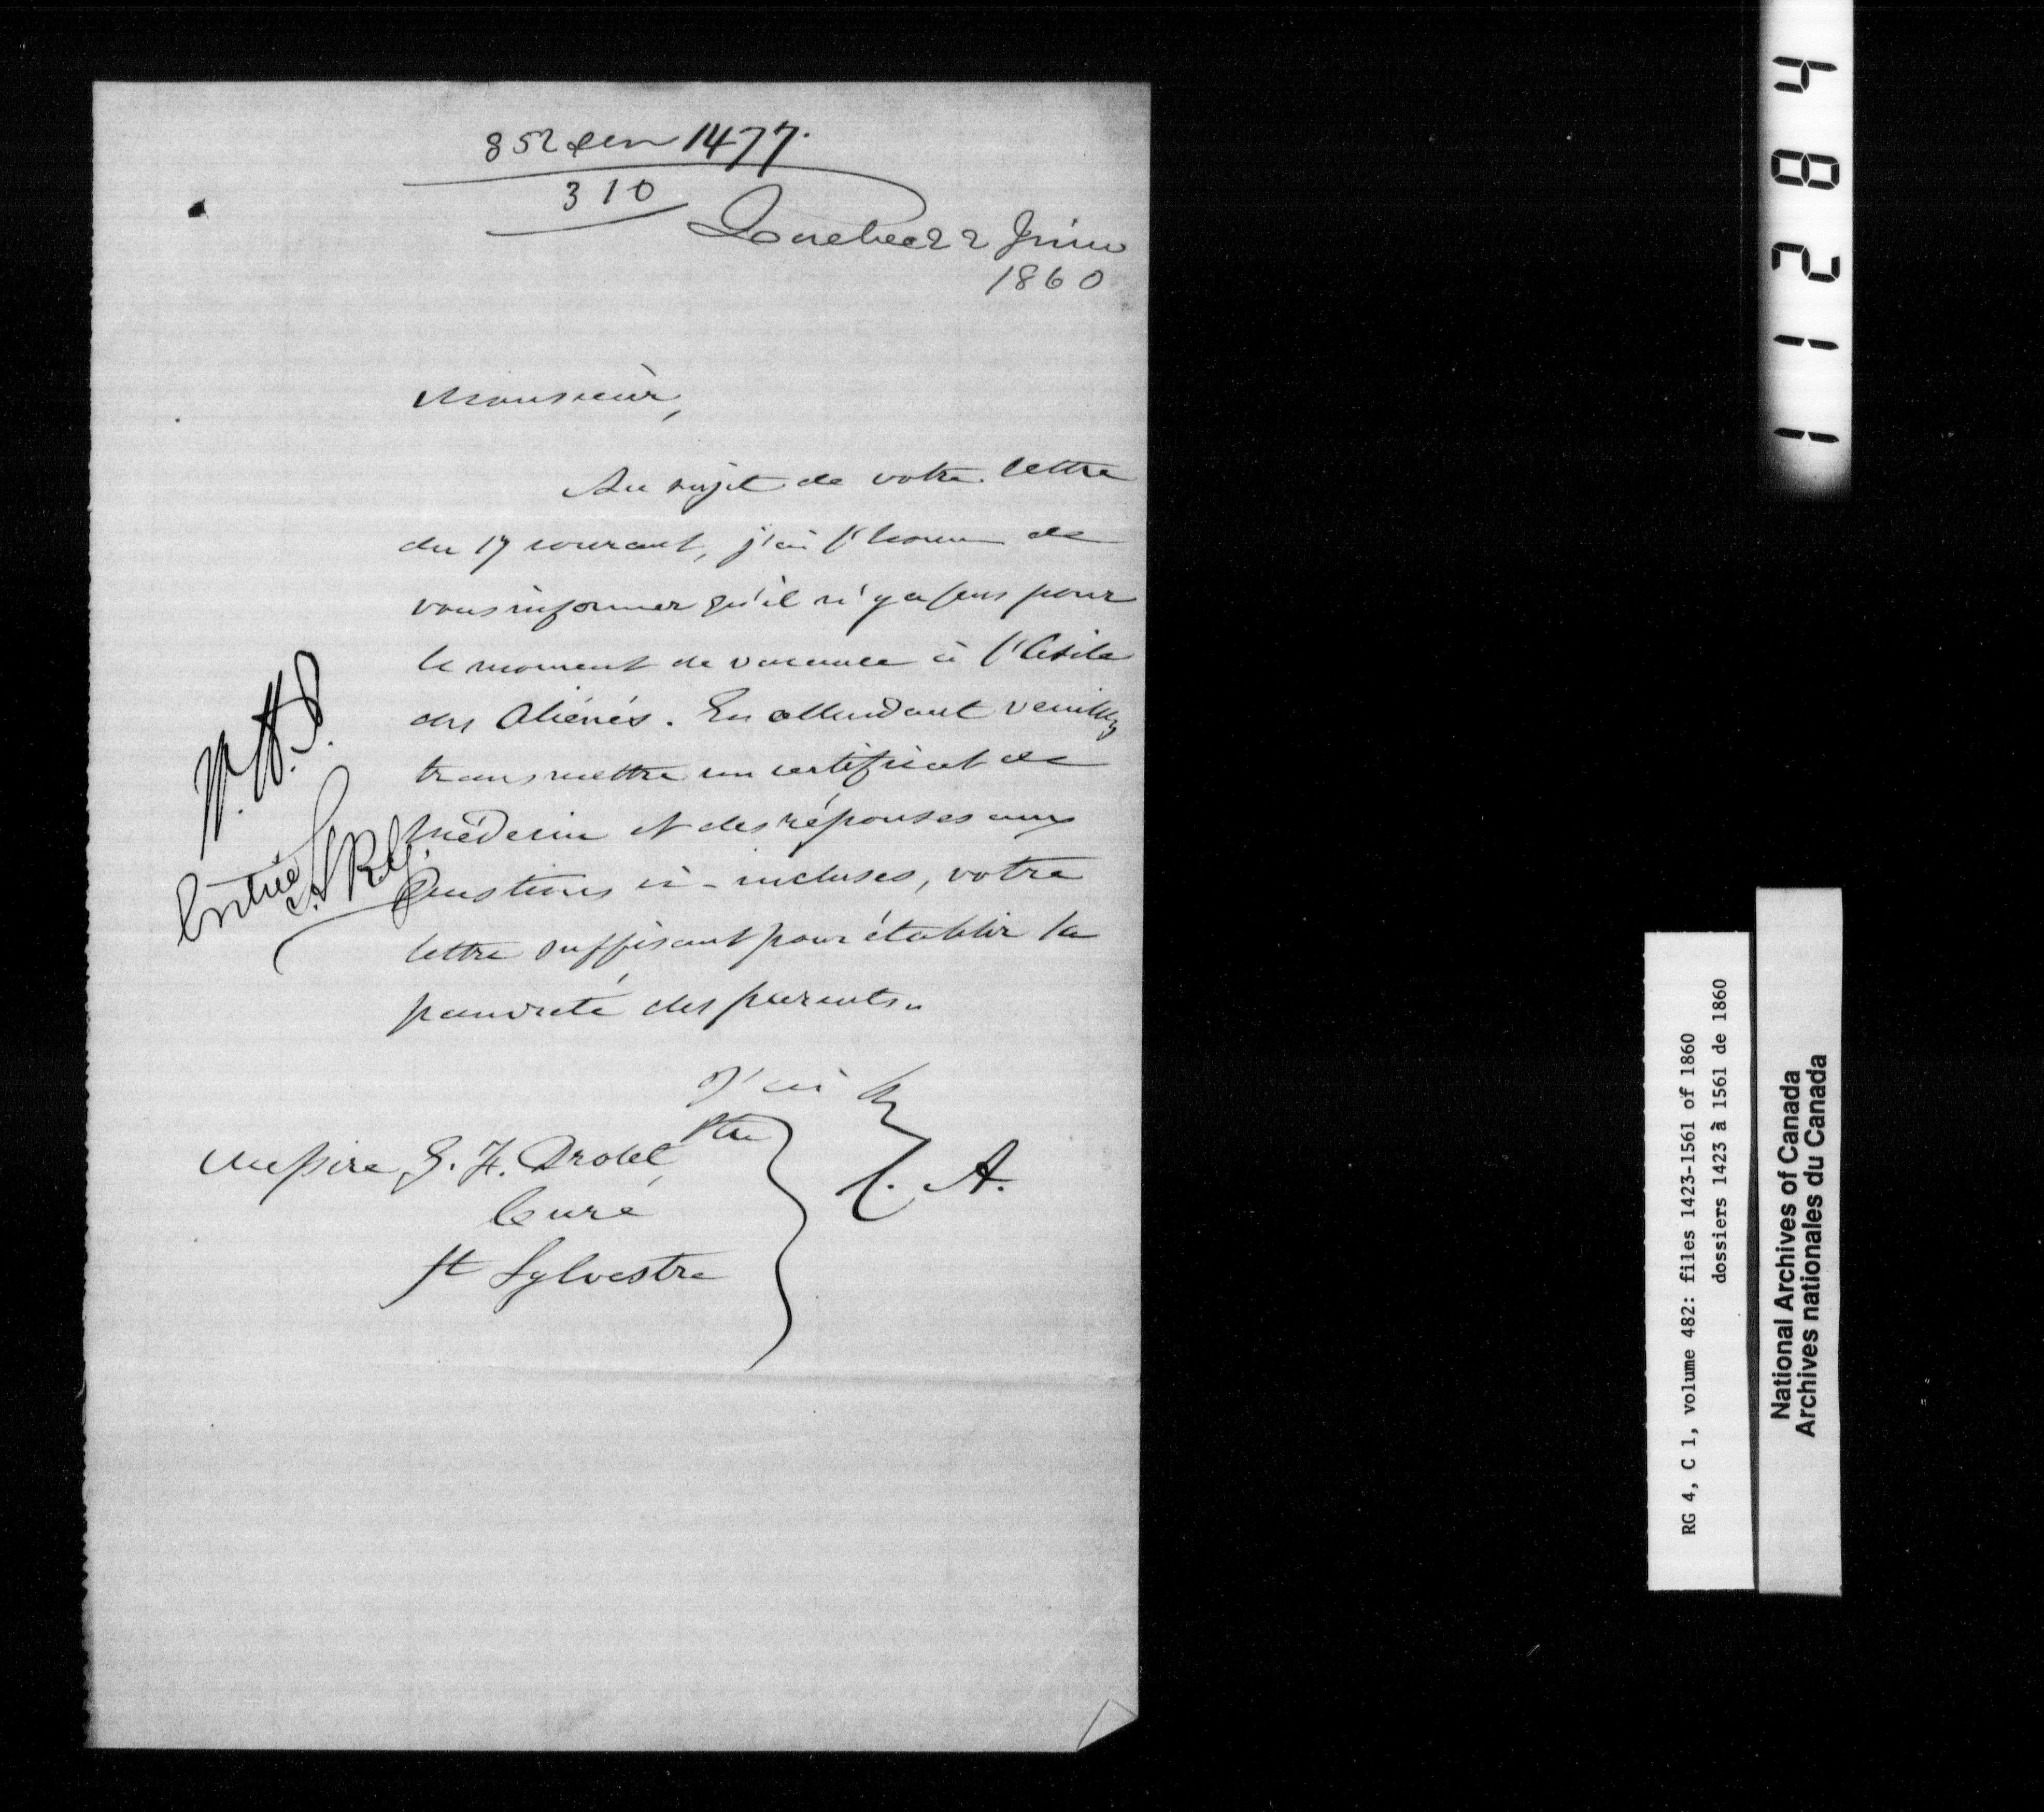 852 sur 1477.
310
Quebec 22 Juin
1860
Monsieur,
Au sujet de votre lettre
du 17 courant, j'ai l'honn de
vous informer qu'il n'y a pas pour
le moment de vacance à l'Asile
des Aliénés. En attendant veuillez
transmettre un certificat de
Médecin et des réponses aux
Questions ci-incluses, votre
lettre suffisant pour établir la
pauvreté des parents.
J'ai
Ptre
Messire G. F. Drolet
Curé
St Sylvestre
C. A.
Entrée
11284
RG 4, C 1, volume 482: files 1423-1561 of 1860
dossiers 1423 à 1561 de 1860
National Archives of Canada
Archives nationales du Canada